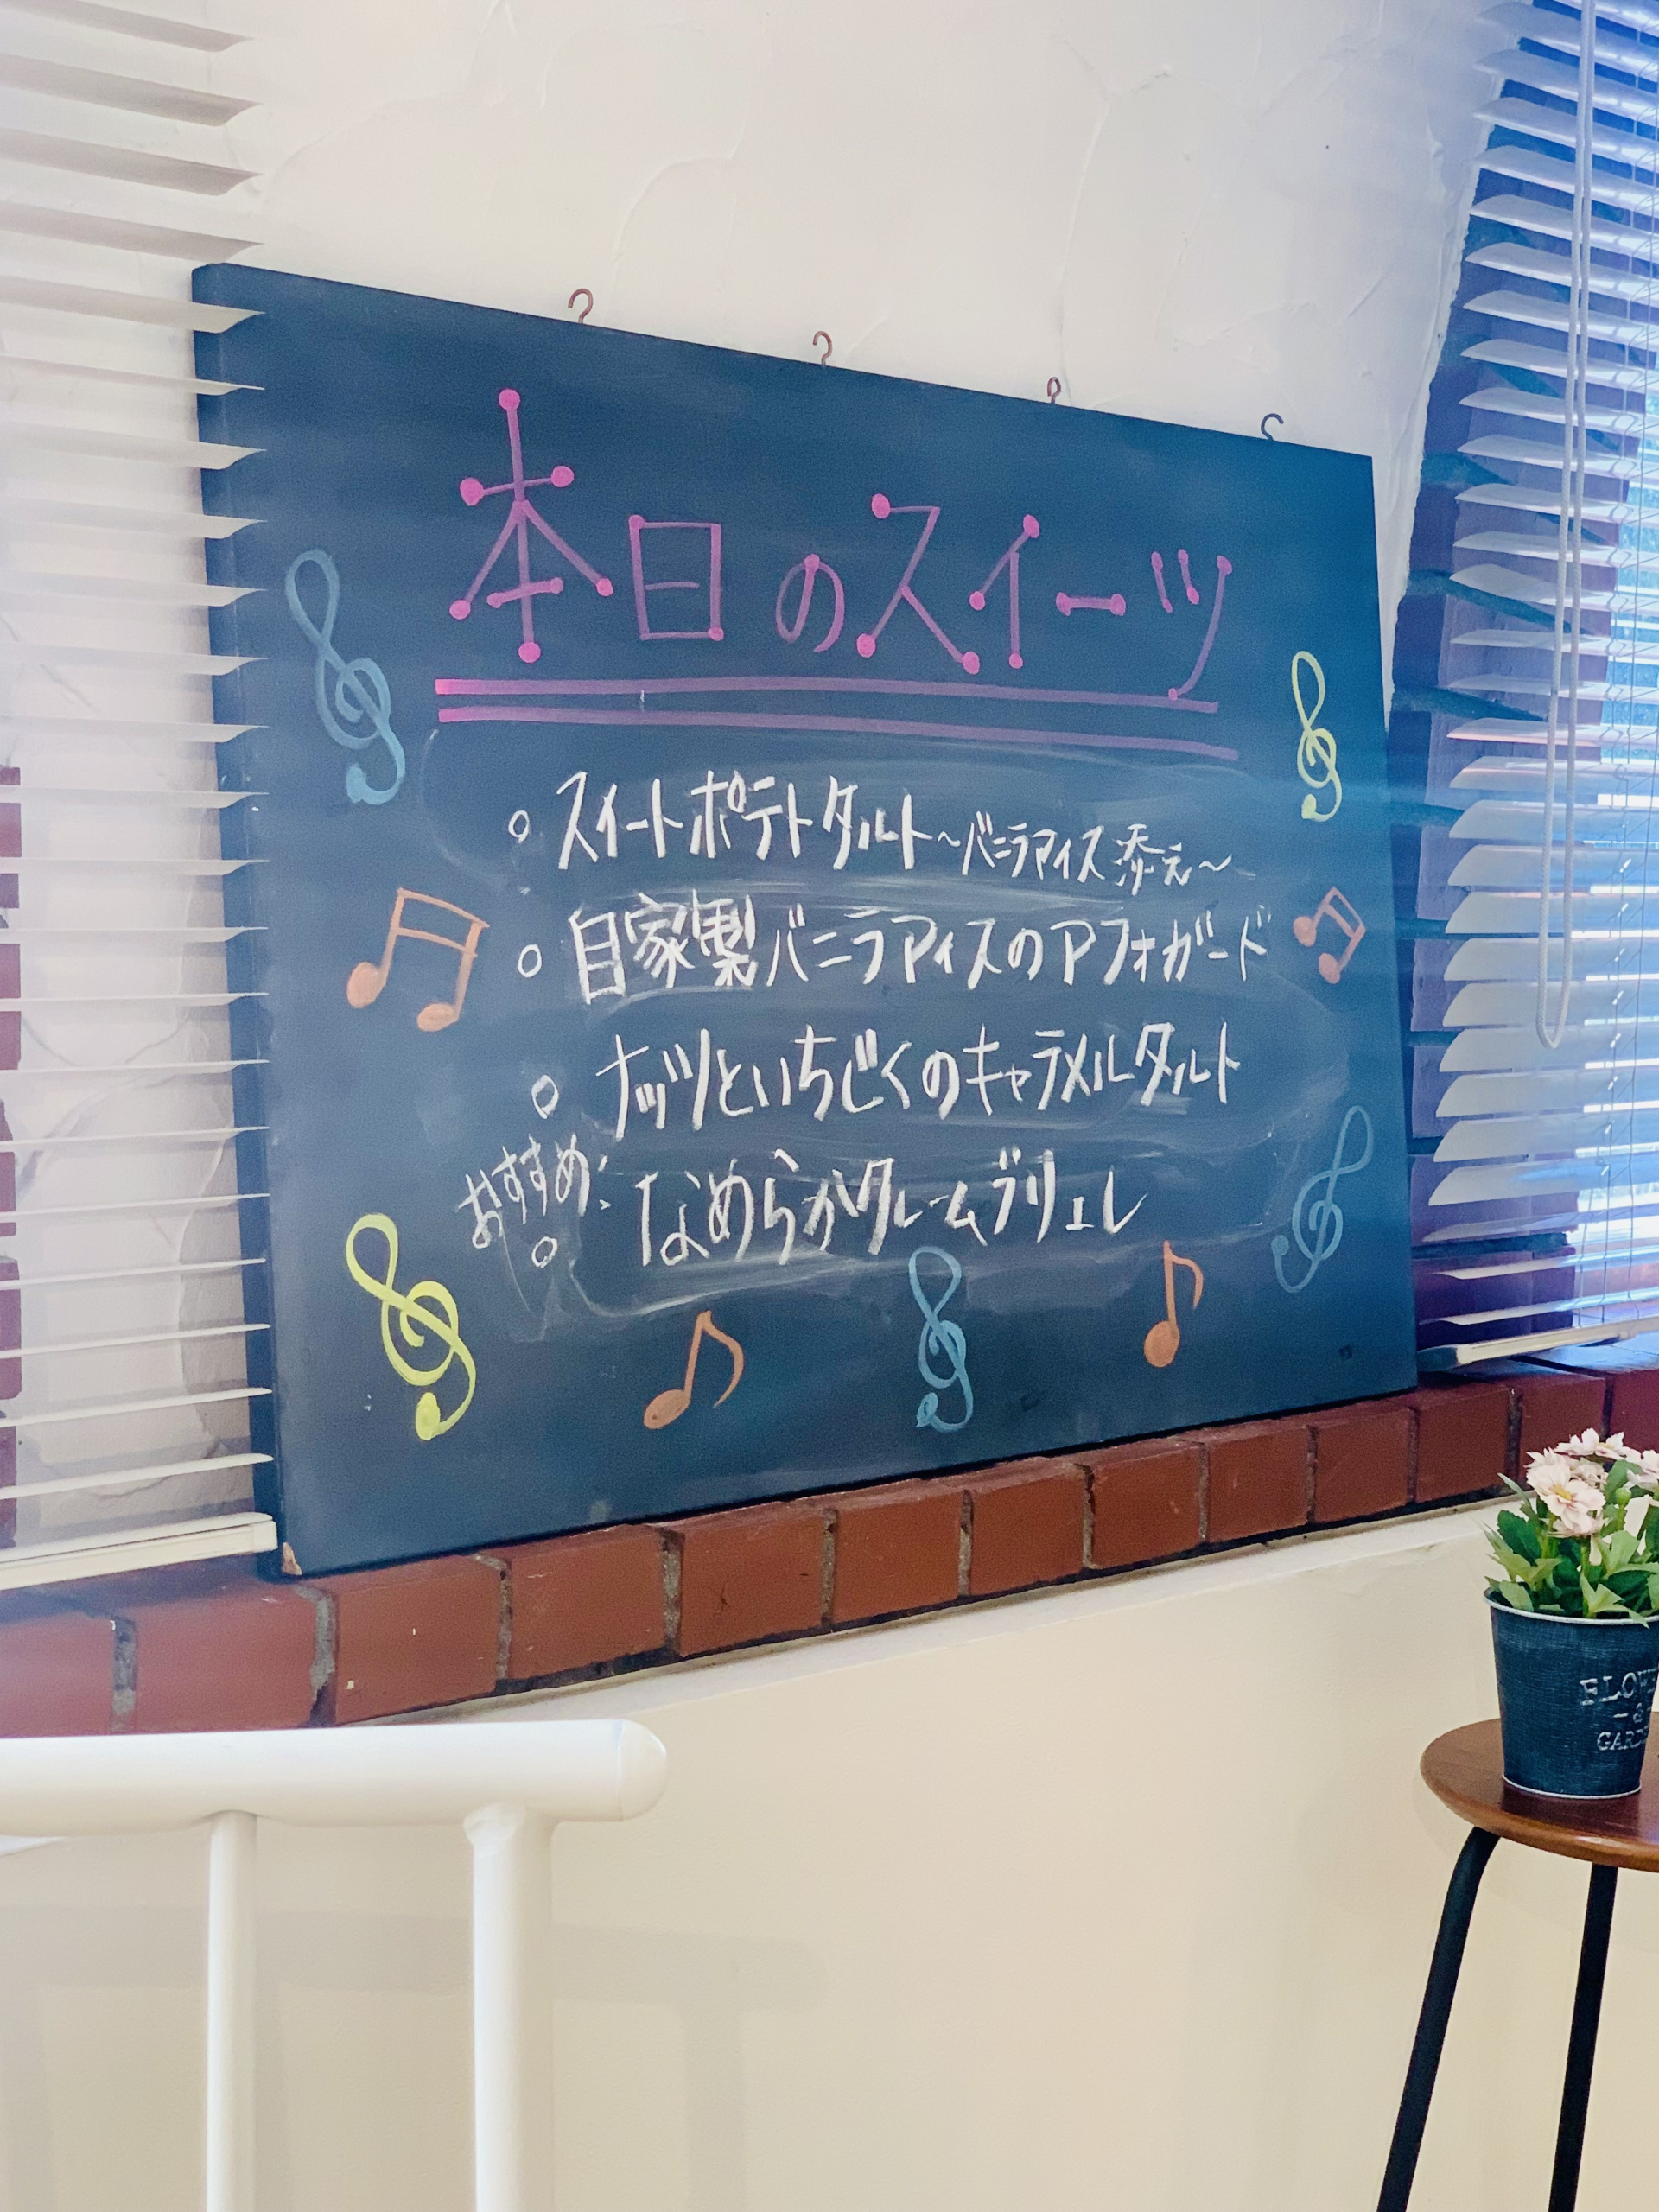 本日のスイーツ
○ スイートポテトタルト～バニラアイス添え～
○ 自家製バニラアイスのアフォガード
○ ナッツといちじくのキャラメルタルト
おすすめ！
○ なめらかクレームブリュレ
FLOW
- & 
GARD